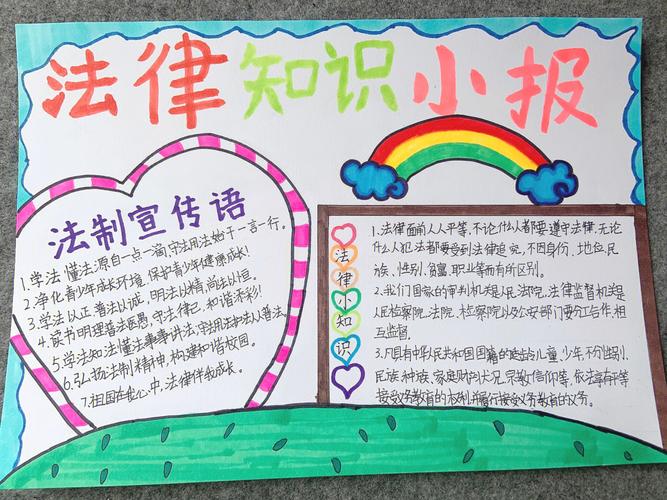 法律知识小报
法制宣传语
1.学法懂法源自一点一滴,守法用法始于一言一行。
2.净化青少年成长环境,保护青少年健康成长!
3.学法以正 普法以诚,明法以精 尚法以恒。
4.读书明理普法医愚,守法律己,和谐添彩!
5.学法知法懂法事事讲法,守法用法护法人人普法。
6.弘扬法制精神,构建和谐校园。
7.祖国在我心中,法律伴我成长。
法律小知识
1.法律面前人人平等,不论什么人都要遵守法律,无论
什么人犯法都要受到法律追究,不因身份、地位、民
族、性别、贫富、职业等而有所区别。
2.我们国家的审判机关是人民法院,法律监督机关是
人民检察院,法院、检察院以公安部门要分工合作,相
互监督。
3.凡具有中华人民共和国国籍的适龄儿童、少年,不分性别、
民族、种族、家庭财产状况、宗教信仰等,依法享有平等
接受义务教育的权利,并履行接受义务教育的义务。